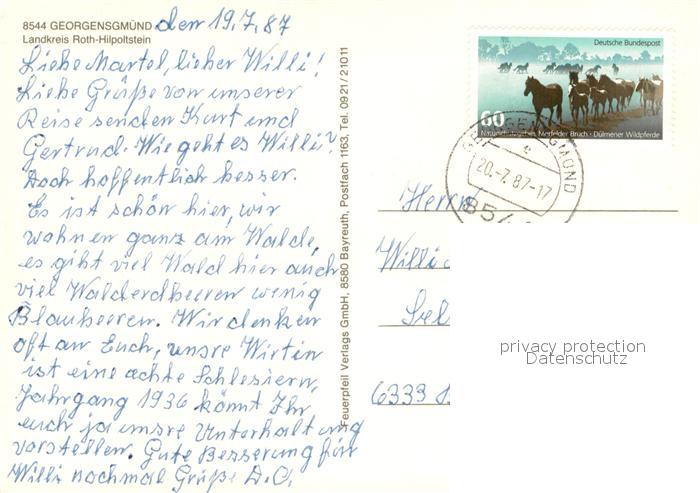 8544 GEORGENSGMÜND
den 19.7.87
Landkreis Roth-Hilpoltstein
Liebe Martel, lieber Willi!
Liebe Grüße von unserer
Reise senden Kurt und
Gertrud. Wie geht es Willi?
Doch hoffentlich besser.
Es ist schön hier, wir
wohnen ganz am Walde,
es giht viel Wald hier auch
viel Walderdbeeren wenig
Blaubeeren. Wir denken
oft an Euch, unsre Wirtin
ist eine echte Schlesierin,
Jahrgang 1936 könnt Ihr
euch ja unsre Unterhaltung
vorstellen. Gute Besserung für
Willi nochmal Grüße D.O.
Feuerpfeil Verlags GmbH, 8580 Bayreuth, Postfach 1163, Tel. 0921/21011
Deutsche Bundespost
60
Naturschutzgebiet Merfelder Bruch · Dülmener Wildpferde
20.-7.87-17
854
Herrn
Willi
Sel
6333
privacy protection
Datenschutz